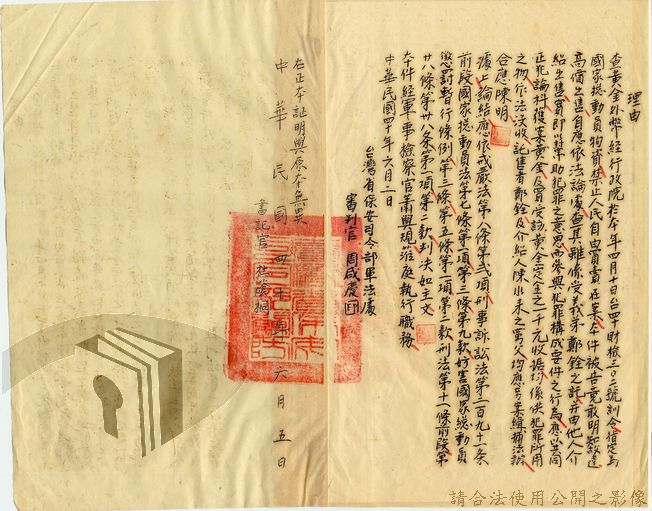 理由
查黃金外幣經行政院於本年四月十日台四財檢三〇二號訓令指定為
國家總動員物資禁止人民自由買賣在案本件被告竟敢明知故違
高價出售自應依法論處查其雖係受義弟鄭銓之託并由他人介
紹出售買即以幫助犯罪之意思而參與犯罪構成要件之行為應以共同
正犯論科獲案黃金及買受該黃金定金之一千元收据均係供犯罪所用
之物依法沒收託售者鄭銓及介紹人陳小末之萬父均應另案緝捕法辦
合應陳明
據上論結應依戒嚴法第八條第弍項刑事訴訟法第二百九十一條
前段國家總動員法第七條第一項第三條第九款妨害國家總動員
懲罰暫行條例第三條第五條第一項第二款刑法第十一條前段第
廿八條第卅八條第一項第二款判決如主文
本件經軍事檢察官蕭與規蒞庭執行職務
中華民國四十年六月二日
台灣省保安司令部軍法處
審判官 周咸慶
右正本証明與原本無異
書記官
中華民國四十年六月五日
請合法使用公開之影像